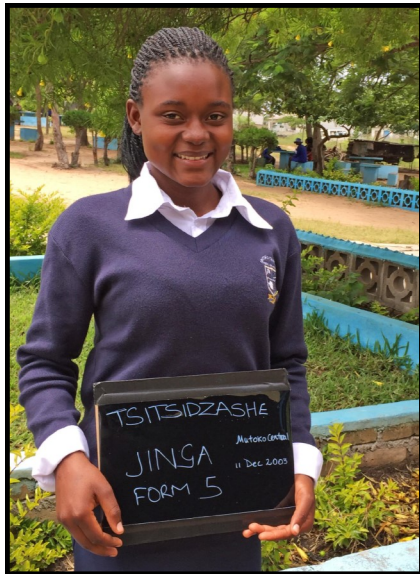 TSITSIDZASHE
Mutoko Central
JINGA
11 Dec 2003
FORM 5